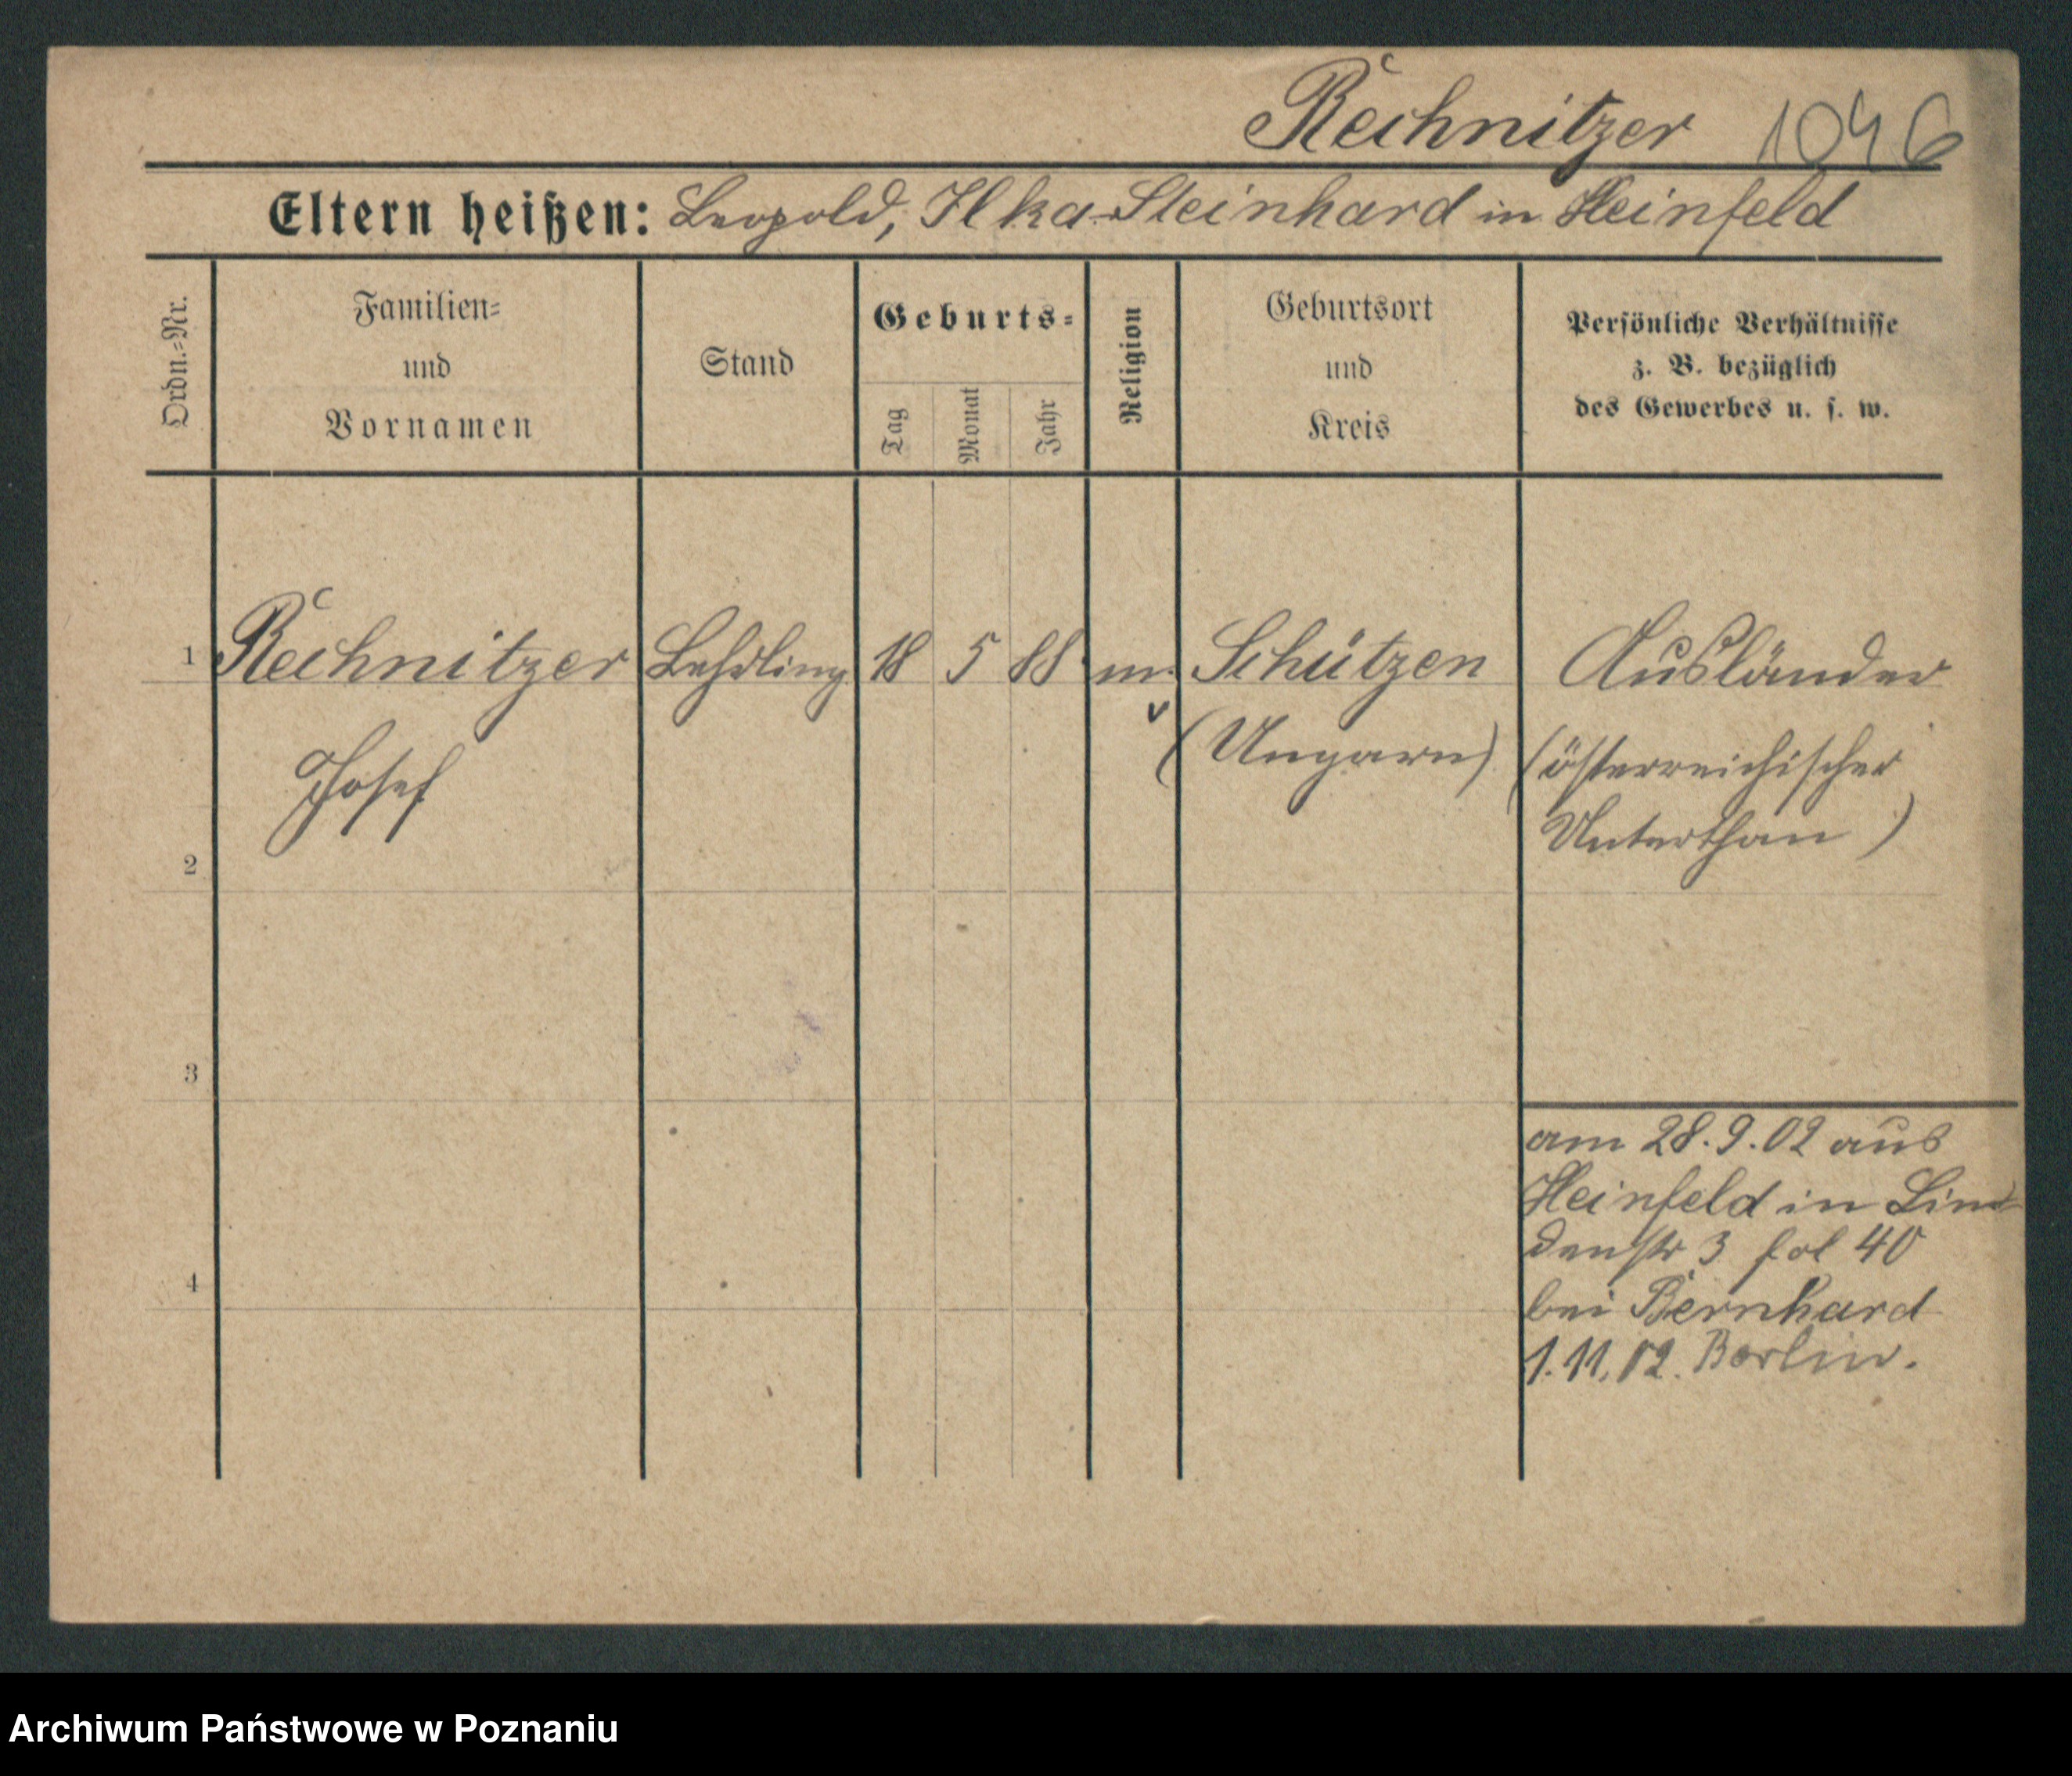 Rechnitzer 1046
Eltern heißen: Leopold, Ilka Steinhard in Heinfeld
Ordn.-Nr.
Familien-
und
Vornamen
Stand
Geburts-
Tag
Monat
Jahr
Religion
Geburtsort
und
Kreis
Persönliche Verhältnisse
z. B. bezüglich
des Gewerbes u. s. w.
1 Rechnitzer Lehrling 18 5 88 m. Schützen Ausländer
(Ungarn) (österreichischer
Josef
Unterthan)
2
3
am 28.9.02 aus
Heinfeld in Lin-
denstr 3 fol 40
4
bei Bernhard
1.11.02. Berlin.
Archiwum Państwowe w Poznaniu